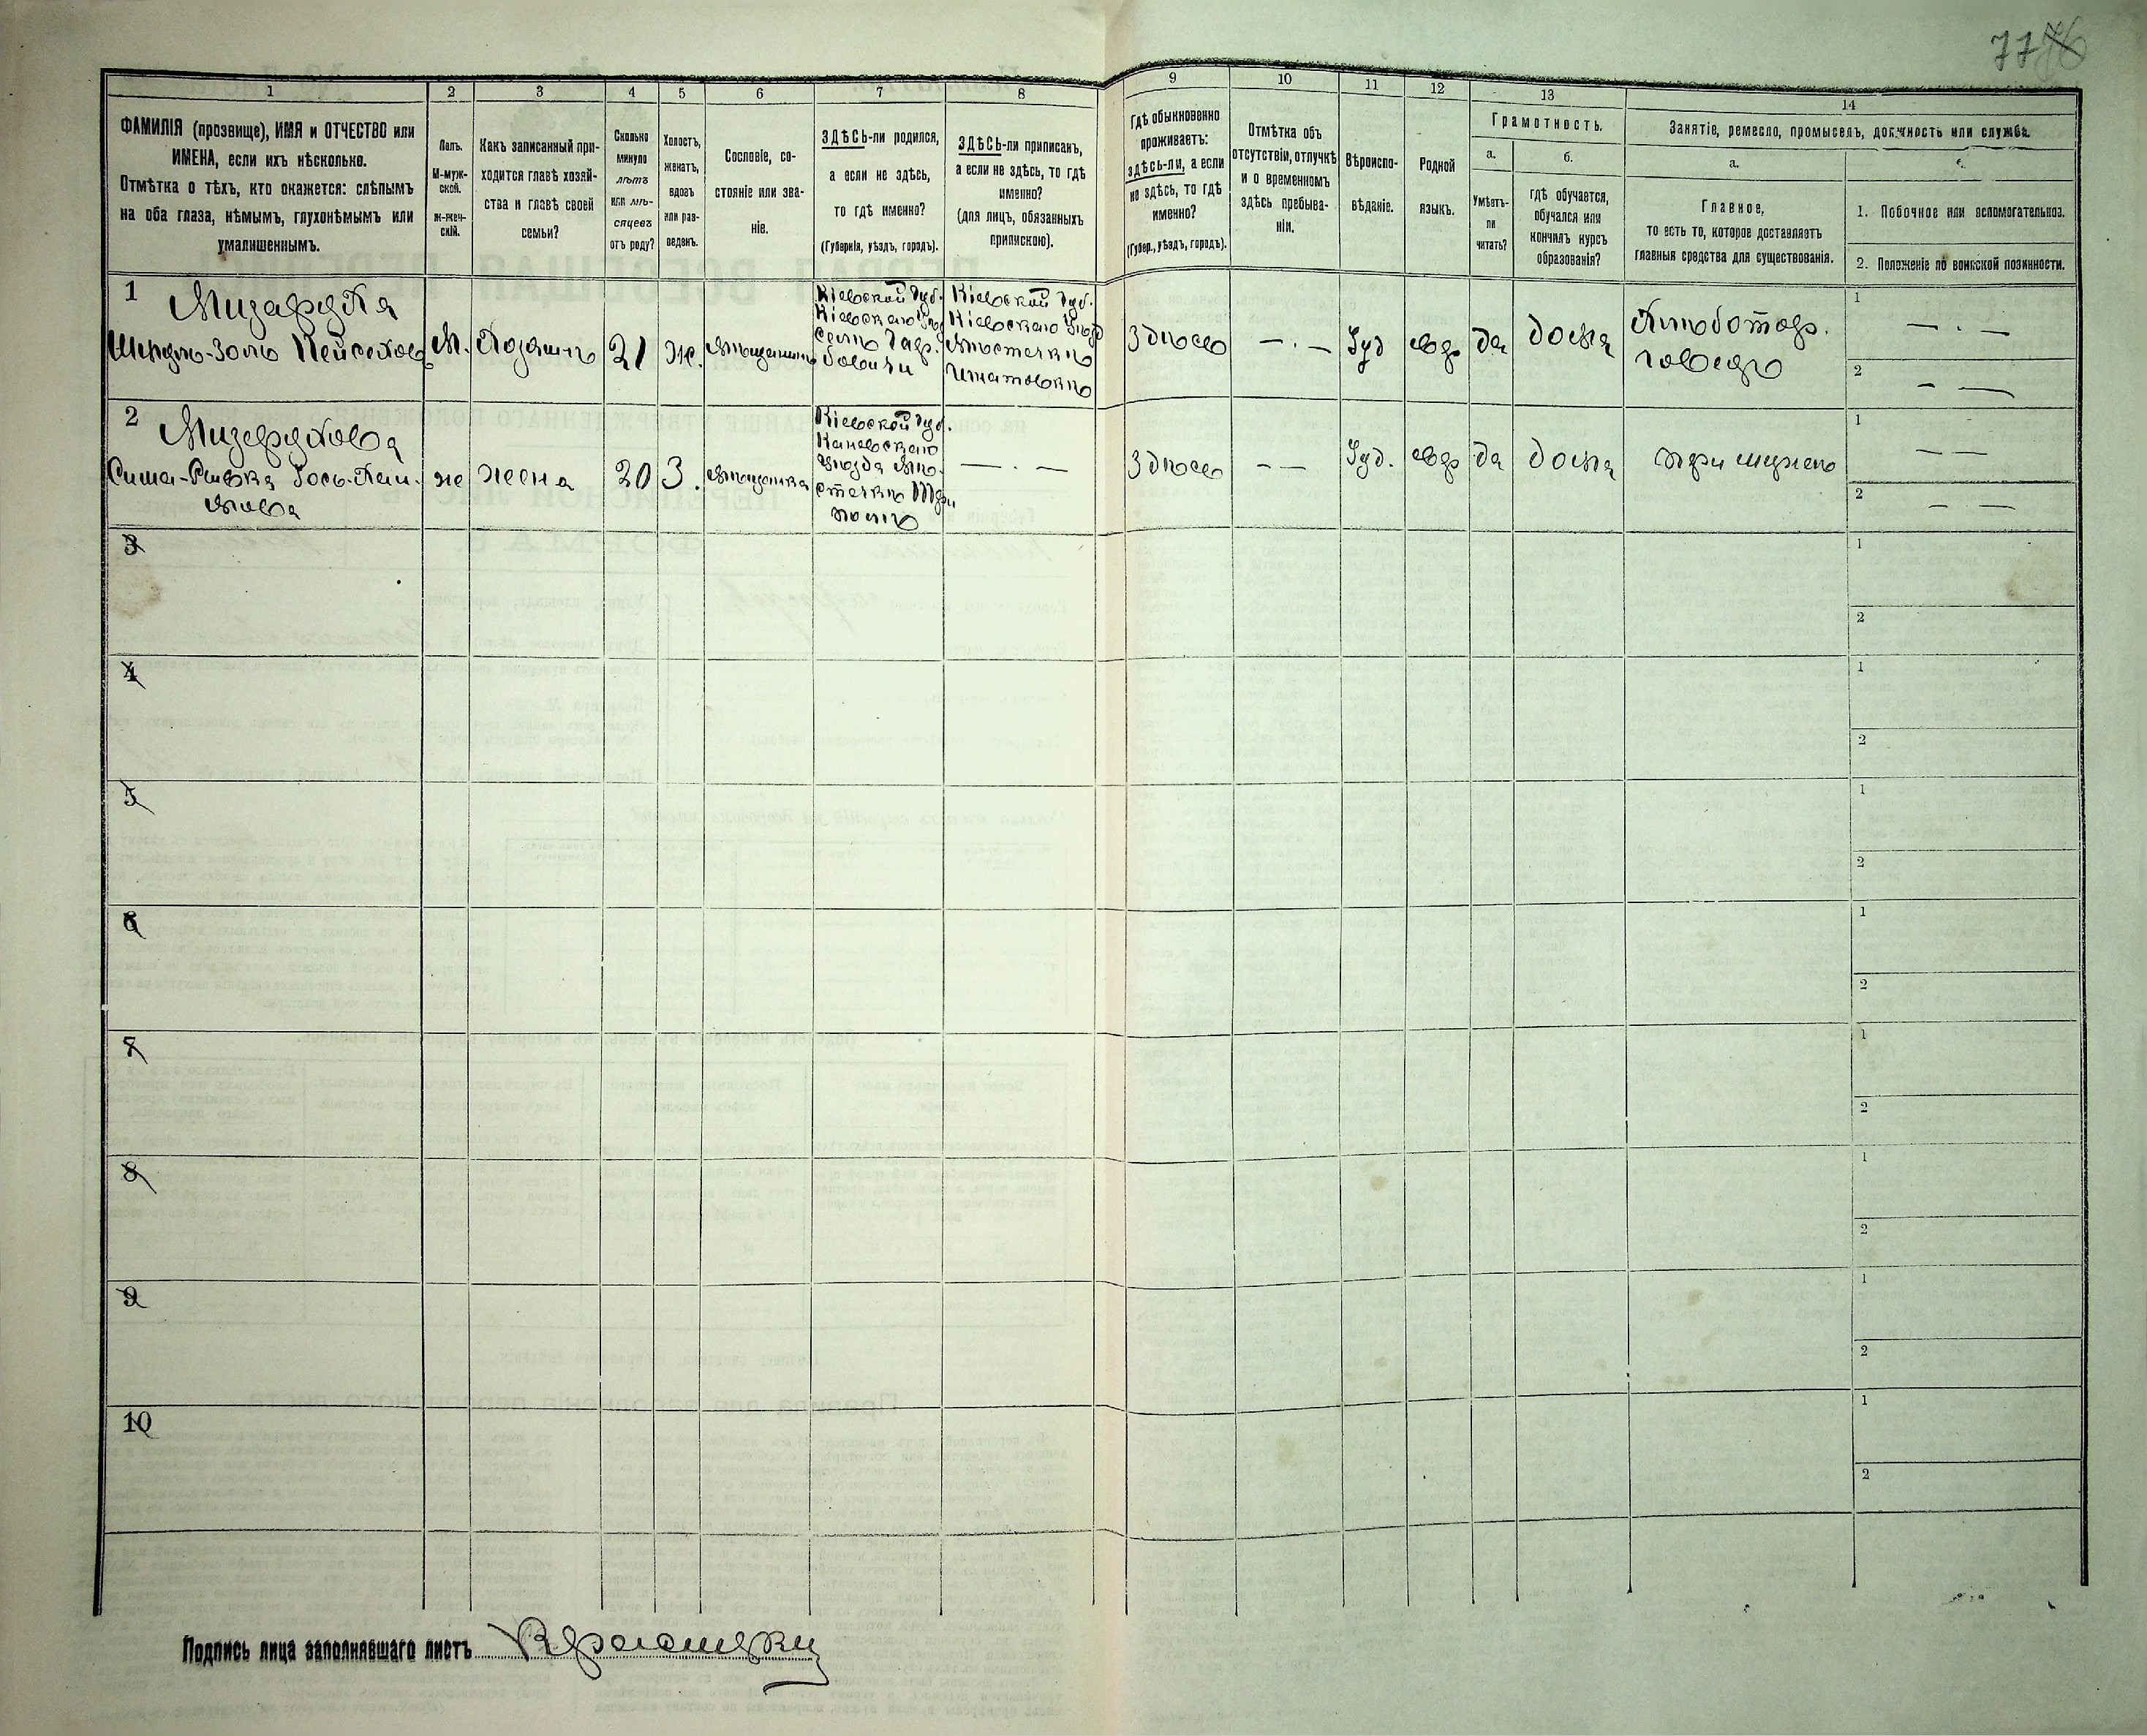 77 76
1
ФАМИЛІЯ (прозвище), ИМЯ и ОТЧЕСТВО или
ИМЕНА, если ихъ нѣсколько.
Отмѣтка о тѣхъ, кто окажется: слѣпымъ
на оба глаза, нѣмымъ, глухонѣмымъ или
умалишеннымъ.
2
Полъ.
М-муж-
ской.
Ж-жен-
скій.
3
Какъ записанный при-
ходится главѣ хозяй-
ства и главѣ своей
семьи?
4
Сколько
минуло
лѣтъ
или мѣ-
сяцевъ
отъ роду?
5
Холостъ,
женатъ,
вдовъ
или раз-
веденъ.
6
Сословіе, со-
стояніе или зва-
ніе.
7
ЗДѢСЬ-ли родился,
а если не здѣсь,
то гдѣ именно?
(Губернія, уѣздъ, городъ).
8
ЗДѢСЬ-ли приписанъ,
а если не здѣсь, то гдѣ
именно?
(для лицъ, обязанныхъ
припискою).
9
Гдѣ обыкновенно
проживаетъ:
здѣсь-ли, а если
не здѣсь, то гдѣ
именно?
(Губер., уѣздъ, городъ).
10
Отмѣтка объ
отсутствіи, отлучкѣ
и о временномъ
здѣсь пребыва-
ніи.
11
Вѣроиспо-
вѣданіе.
12
Родной
языкъ.
13
Грамотность.
а.
Умѣетъ-
ли
читать?
б.
гдѣ обучается,
обучался или
кончилъ курсъ
образованія?
14
Занятіе, ремесло, промыселъ, должность или служба.
а.
Главное,
то есть то, которое доставляетъ
главныя средства для существованія.
1. Побочное или вспомогательное.
2. Положеніе по воинской повинности.
1
М.
Хозяинъ
21
ж.
Мѣщанинъ
Кіевской Губ.
Кіевскаго
село
Кіевской Губ.
Кіевскаго
Мѣстечко
Игнатовко
Здѣсь
— . —
Іуд
евр
да
дома
Хлѣботор-
говецъ
1
— . —
2
— —
2
жена
20
З.
Мѣщанка
Кіевской Губ.
Каневскаго
уѣзда Мѣ-
стечко Три
полъ
— . —
Здѣсь
— —
Іуд.
евр
да
дома
при мужѣ
1
— —
2
— —
3
1
2
4
1
2
5
1
2
6
1
2
7
1
2
8
1
2
9
1
2
10
1
2
Подпись лица заполнявшаго листъ